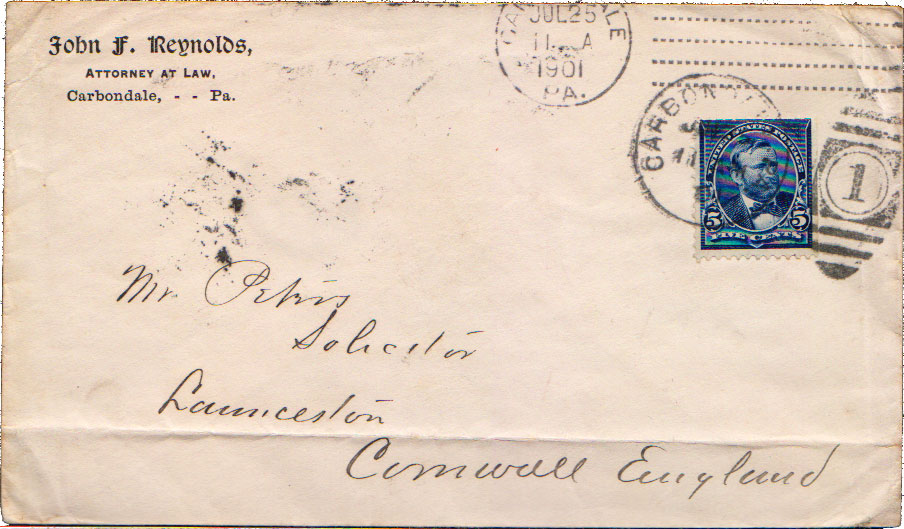 John F. Reynolds,
ATTORNEY AT LAW,
Carbondale, - - Pa.
JUL 25
11 A
1901
PA.
CARBON
1
UNITED STATES POSTAGE
5 5
Mr. Peters
Solicitor
Launceston
Cornwall England